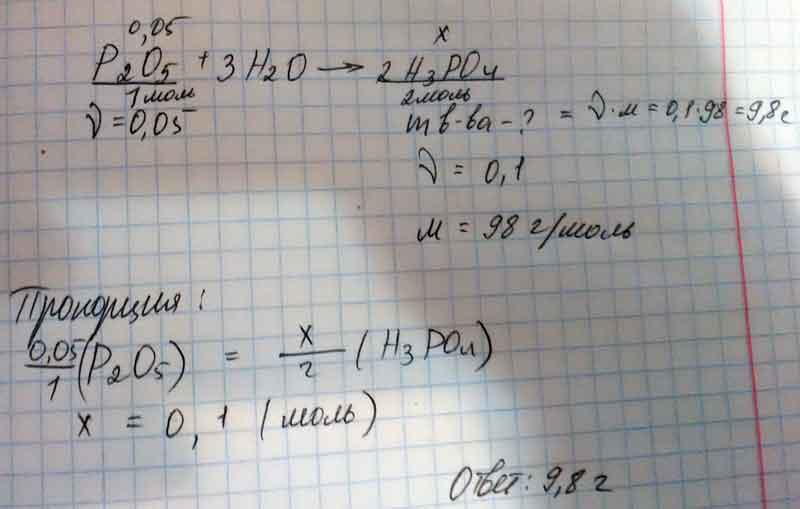 0,05 x
P₂O₅ + 3H₂O → 2H₃PO₄
1 моль 2 моль
ν = 0,05 m в-ва - ? = ν · м = 0,1 · 98 = 9,8 г
ν = 0,1
м = 98 г/моль
Пропорция:
0,05/1 (P₂O₅) = x/2 (H₃PO₄)
x = 0,1 (моль)
Ответ: 9,8 г